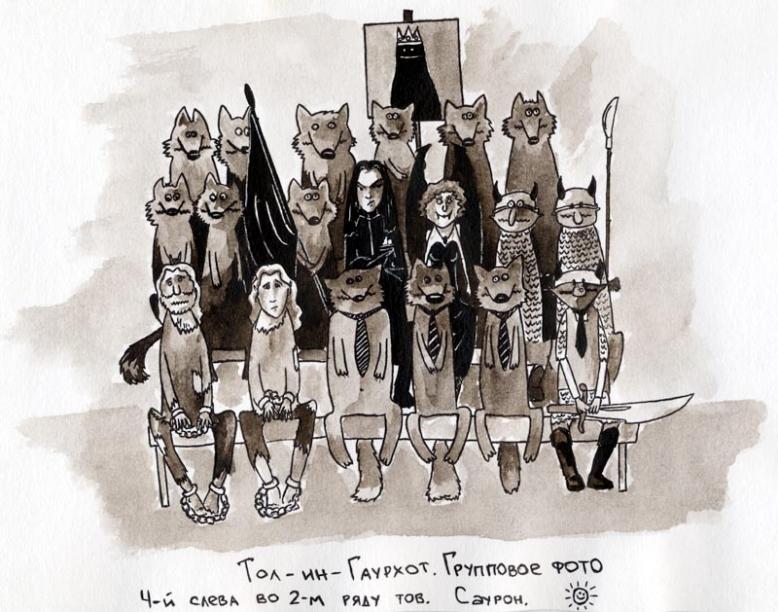 Тол-ин-Гаурхот. Групповое фото
4-й слева во 2-м ряду тов. Саурон.